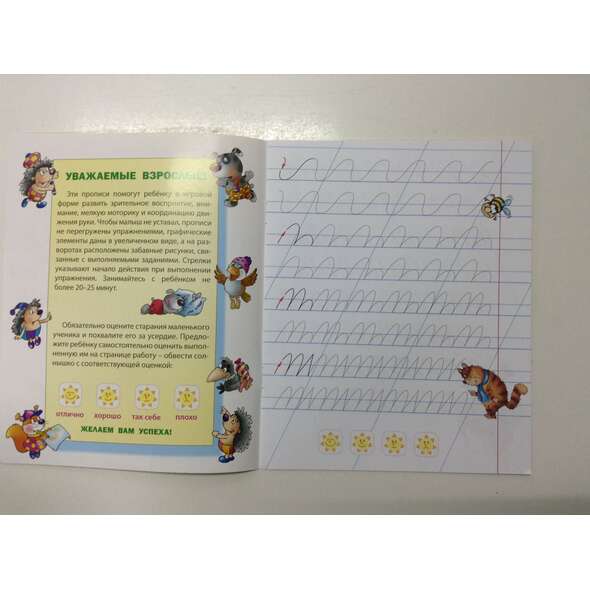 УВАЖАЕМЫЕ ВЗРОСЛЫЕ!
Эти прописи помогут ребёнку в игровой
форме развить зрительное восприятие, вни-
мание, мелкую моторику и координацию дви-
жения руки. Чтобы малыш не уставал, прописи
не перегружены упражнениями, графические
элементы даны в увеличенном виде, а на раз-
воротах расположены забавные рисунки, свя-
занные с выполняемыми заданиями. Стрелки
указывают начало действия при выполнении
упражнения. Занимайтесь с ребёнком не
более 20–25 минут.
Обязательно оцените старания маленького
ученика и похвалите его за усердие. Предло-
жите ребёнку самостоятельно оценить выпол-
ненную им на странице работу – обвести сол-
нышко с соответствующей оценкой:
отлично хорошо так себе плохо
ЖЕЛАЕМ ВАМ УСПЕХА!